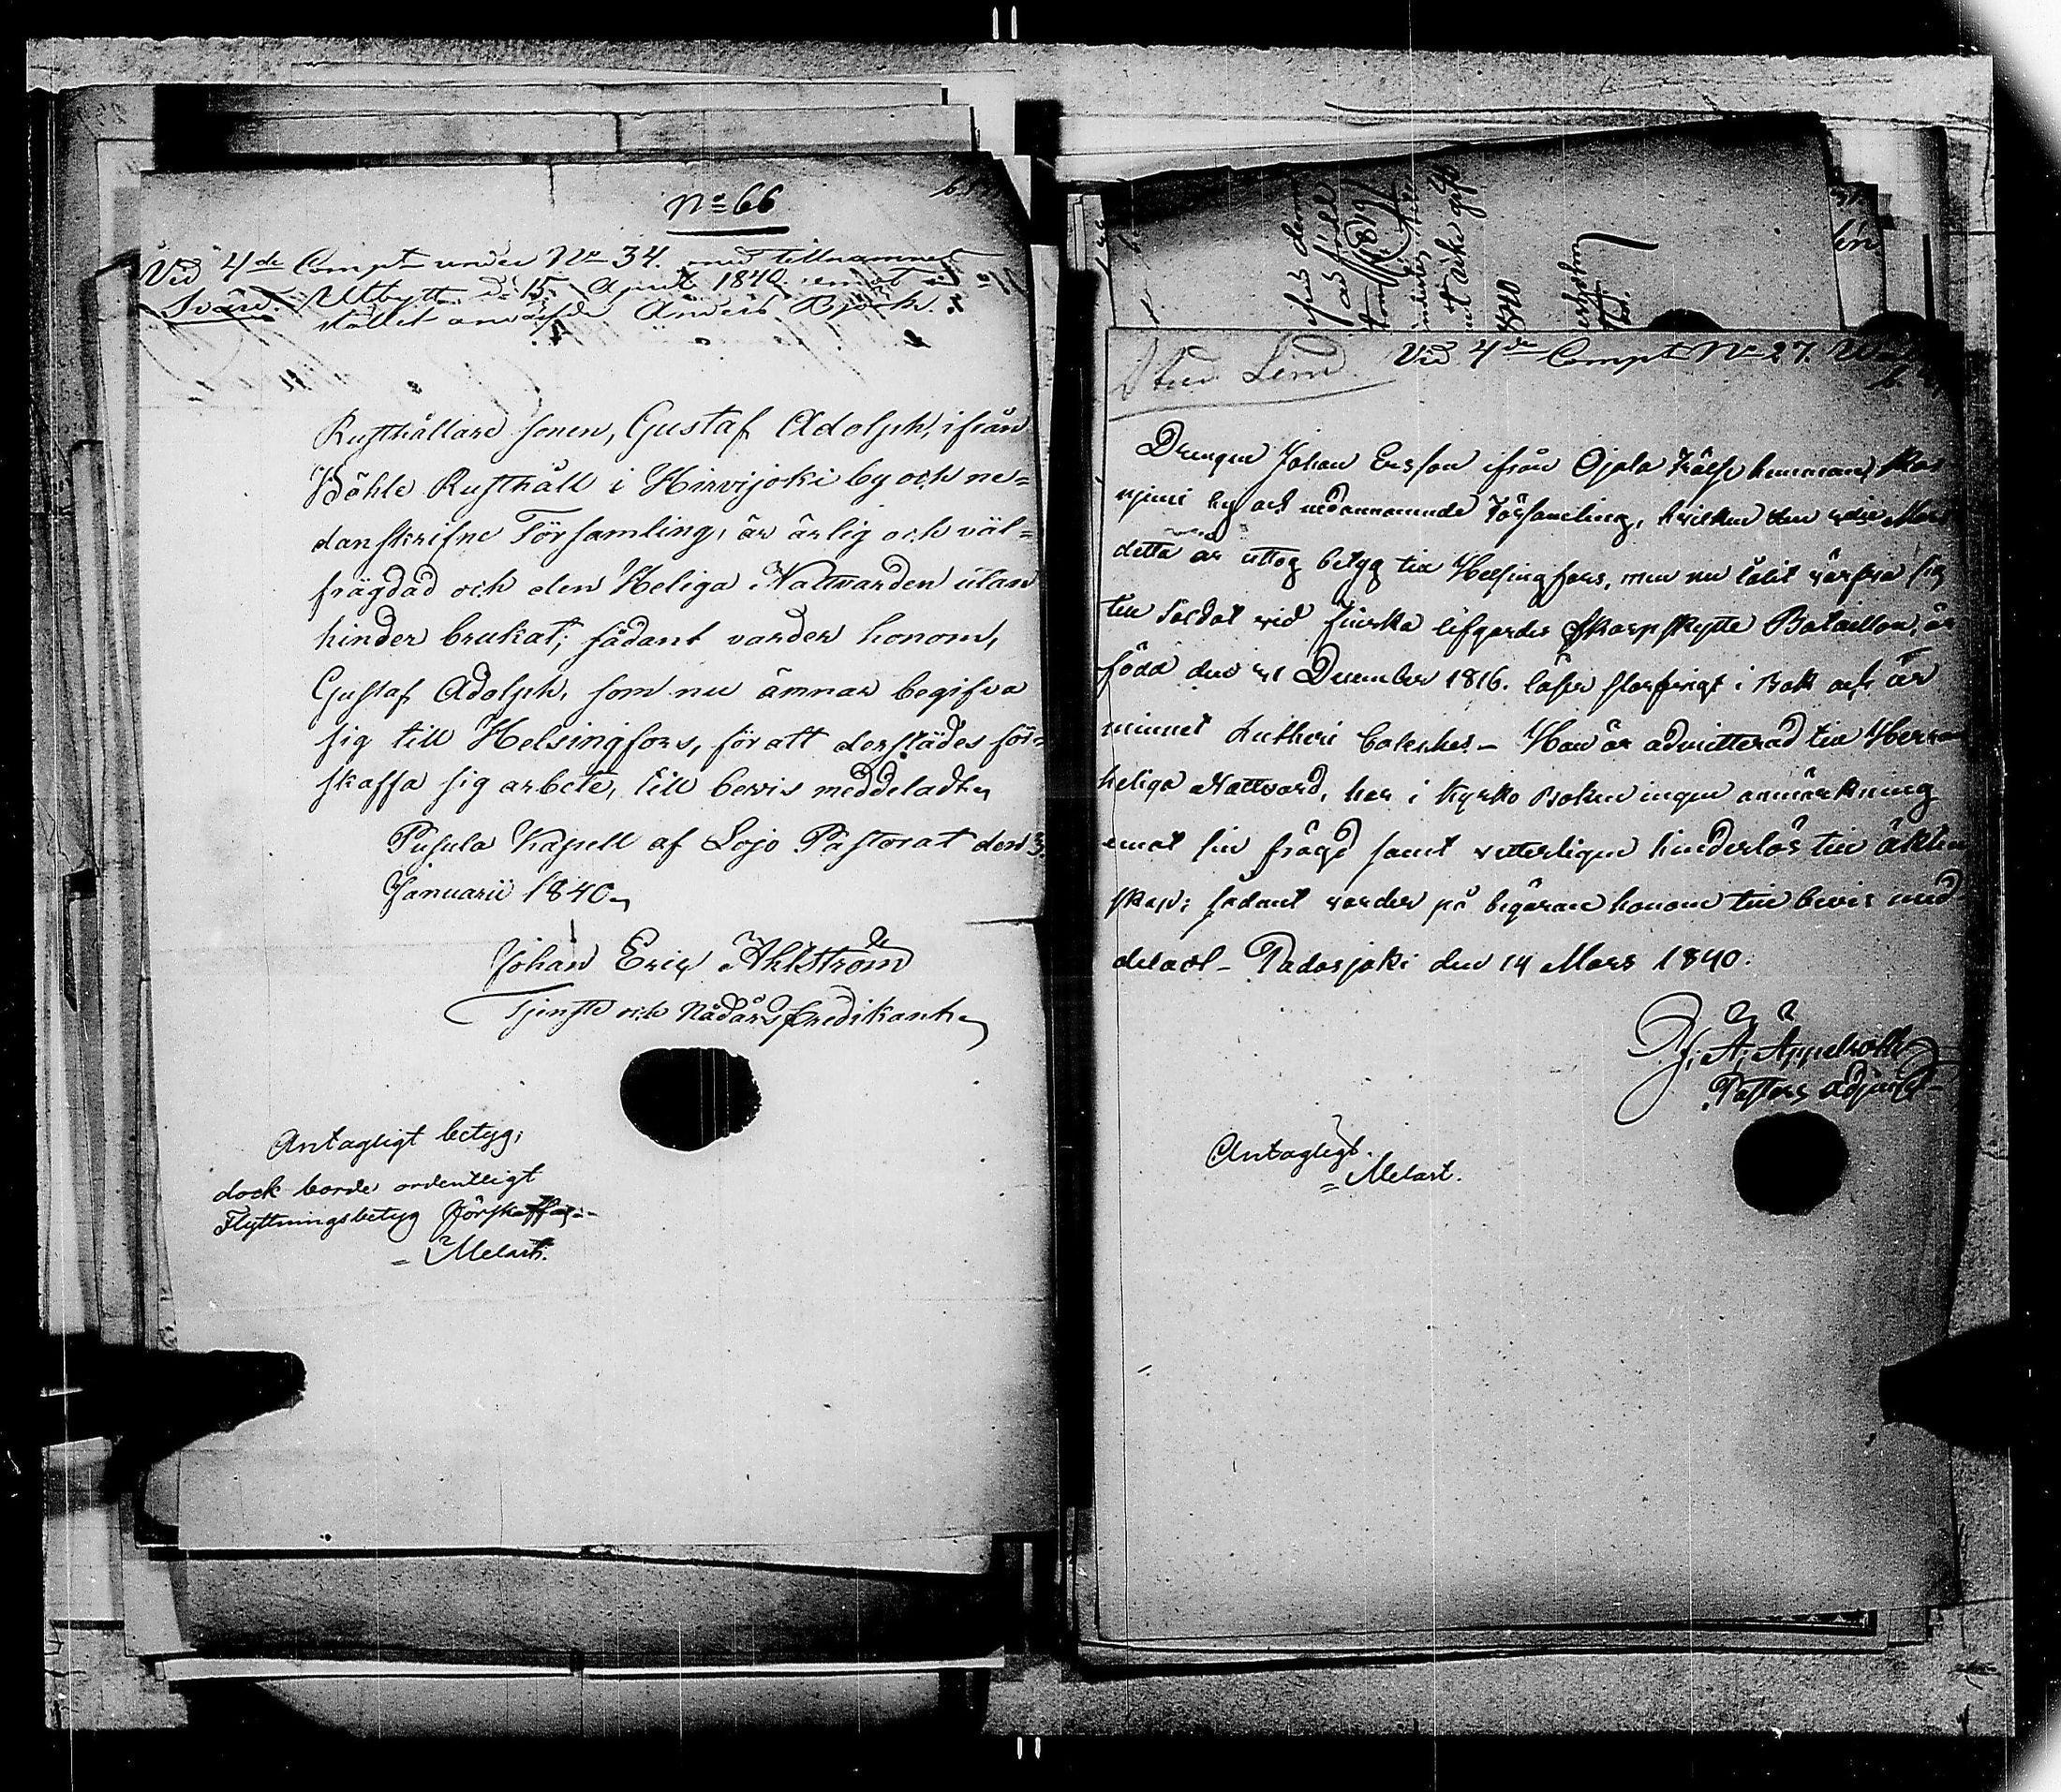 No 66
Vid 4de Compt under No 34. med tillnamnet
Svärd. Utbytt d. 15 April 1840. emot i
stället anvärfde Anders Björk.
Rusthållare sonen, Gustaf Adolph, ifrån
Böhle Rusthåll i Hirvijoki by och ne=
danskrifne Församling, är ärlig och väl=
frägdad och den Heliga Nattvarden utan
hinder brukat; sådant varder honom,
Gustaf Adolph, som nu ämnar begifva
sig till Helsingfors, för att derstädes för=
skaffa sig arbete, till bevis meddeladt.
Pusula Kapell af Lojo Pastorat den 3.
Januarii 1840.
Johan Eric Ahlström
Tjenste och Nådårspredikant.
Antagligt betyg;
dock borde ordentligt
Flyttningsbetyg förskaffas.
= Melart.
1819
1840
Lind. Vid 4de Compt No 27.
Drengen Johan Ersson ifrån Ojala Frälse hemman,
by och nedannämnde Församling, hvilken den
detta år uttog betyg till Helsingfors, men nu låtit värfva sig
till Soldat vid Finska lifgardes Skarpskytte Bataillon, är
född den 21 December 1816. läser i Bok och ur
minnet Lutheri Cateches. – Han är admitterad till Herrans
heliga Nattvard, har i Kyrko Boken ingen anmärkning
emot sin frägd samt vetterligen hinderlös till äkten
skap; sådant varder på begäran honom till bevis med
deladt – Padasjoki den 14 Mars 1840.
J. A. Appelroth
Pastors adjunct
Antagligt.
= Melart.